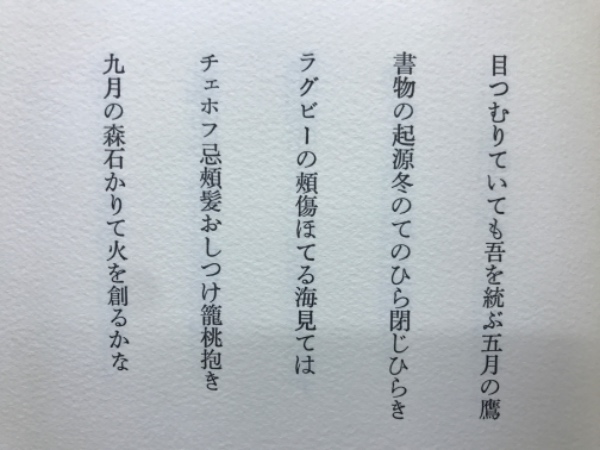 目つむりていても吾を統ぶ五月の鷹
書物の起源冬のてのひら閉じひらき
ラグビーの頰傷ほてる海見ては
チェホフ忌頰髪おしつけ籠桃抱き
九月の森石かりて火を創るかな